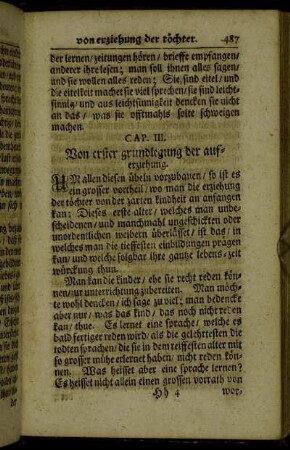 von erziehung der töchter. 487
der lernen/ zeitungen hören/ brieffe empfangen/
anderer ihre lesen; man soll ihnen alles sagen/
und sie wollen alles reden; Sie sind eitel/ und
die eitelkeit machet sie viel sprechen/ sie sind leicht-
sinnig/ und aus leichtsinnigkeit dencken sie nicht
an das/ was sie offtmahls solte schweigen
machen.
CAP. III.
Von erster grundlegung der auf-
erziehung.
UM allen diesen übeln vorzubauen/ so ist es
ein grosser vortheil/ wo man die erziehung
der töchter von der zarten kindheit an anfangen
kan: Dieses erste alter/ welches man unbe-
scheidenen/ und manchmahl ungeschickten oder
unordentlichen weibern überlässet/ ist das/ in
welches man die tieffesten einbildungen prägen
kan/ und welche folgbar ihre gantze lebens-zeit
würckung thun.
Man kan die kinder/ ehe sie recht reden kön-
nen/ zur unterrichtung zubereiten. Man möch-
te wohl dencken/ ich sage zu viel; man bedencke
aber nur/ was das kind/ das noch nicht reden
kan/ thue. Es lernet eine sprache/ welche es
bald fertiger reden wird/ als die gelehrtesten die
todten sprachen/ die sie in dem reiffesten alter mit
so grosser mühe erlernet haben/ nicht reden kön-
nen. Was heisset aber eine sprache lernen?
Es heisset nicht allein einen grossen vorrath von
Hh 4 wor-